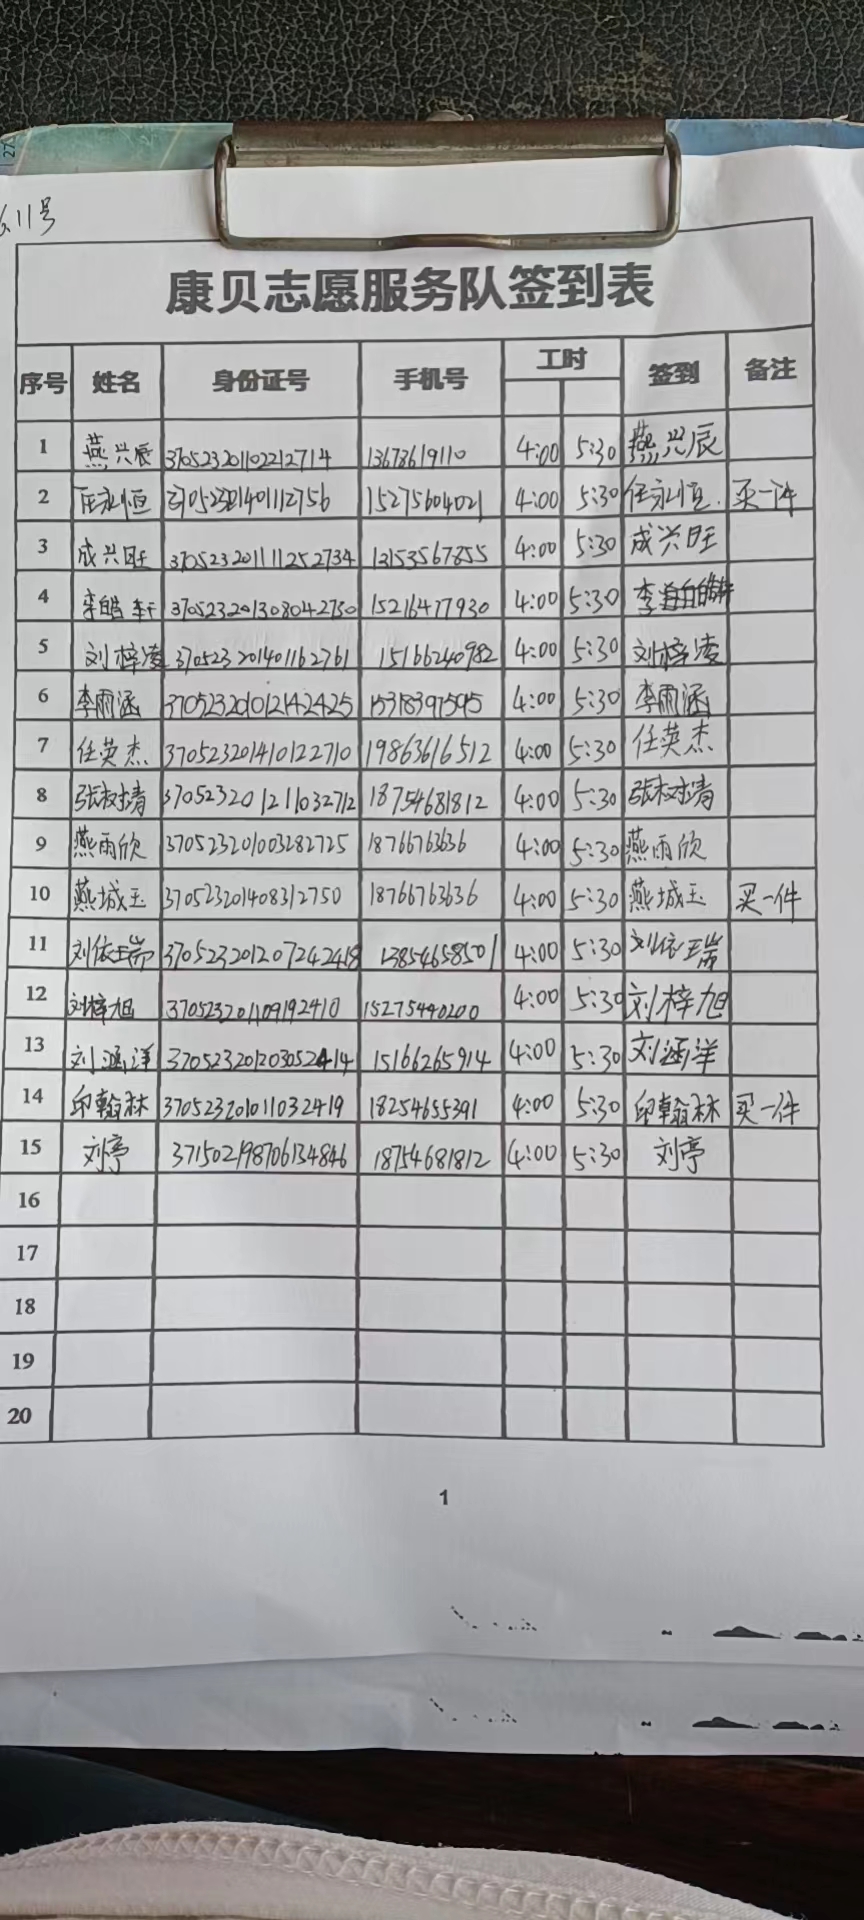 6.11号
康贝志愿服务队签到表
序号 姓名 身份证号 手机号 工时 签到 备注
1 燕兴辰 370523201102212714 13678619110 4:00 5:30 燕兴辰
2 任永恒 15275604021 4:00 5:30 任永恒. 买一件
3 成兴旺 370523201111252734 13153567855 4:00 5:30 成兴旺
4 李皓轩 370523201308042750 15216477930 4:00 5:30
5 刘梓凌 370523201401162761 15166240982 4:00 5:30 刘梓凌
6 李雨涵 370523201012142425 15318397595 4:00 5:30 李雨涵
7 任英杰 370523201410122710 19863616512 4:00 5:30 任英杰
8 张树清 370523201211032712 18754681812 4:00 5:30 张树清
9 燕雨欣 370523201003282725 18766763636 4:00 5:30 燕雨欣
10 燕城玉 370523201408312750 18766763636 4:00 5:30 燕城玉 买一件
11 刘依瑞 370523201207242418 13854658501 4:00 5:30 刘依瑞
12 刘梓旭 370523201109192410 15275440200 4:00 5:30 刘梓旭
13 刘涵洋 370523201203052414 15166265914 4:00 5:30 刘涵洋
14 邱翰林 370523201011032419 18254655391 4:00 5:30 邱翰林 买一件
15 刘亭 371502198706134846 18754681812 4:00 5:30 刘亭
16
17
18
19
20
1